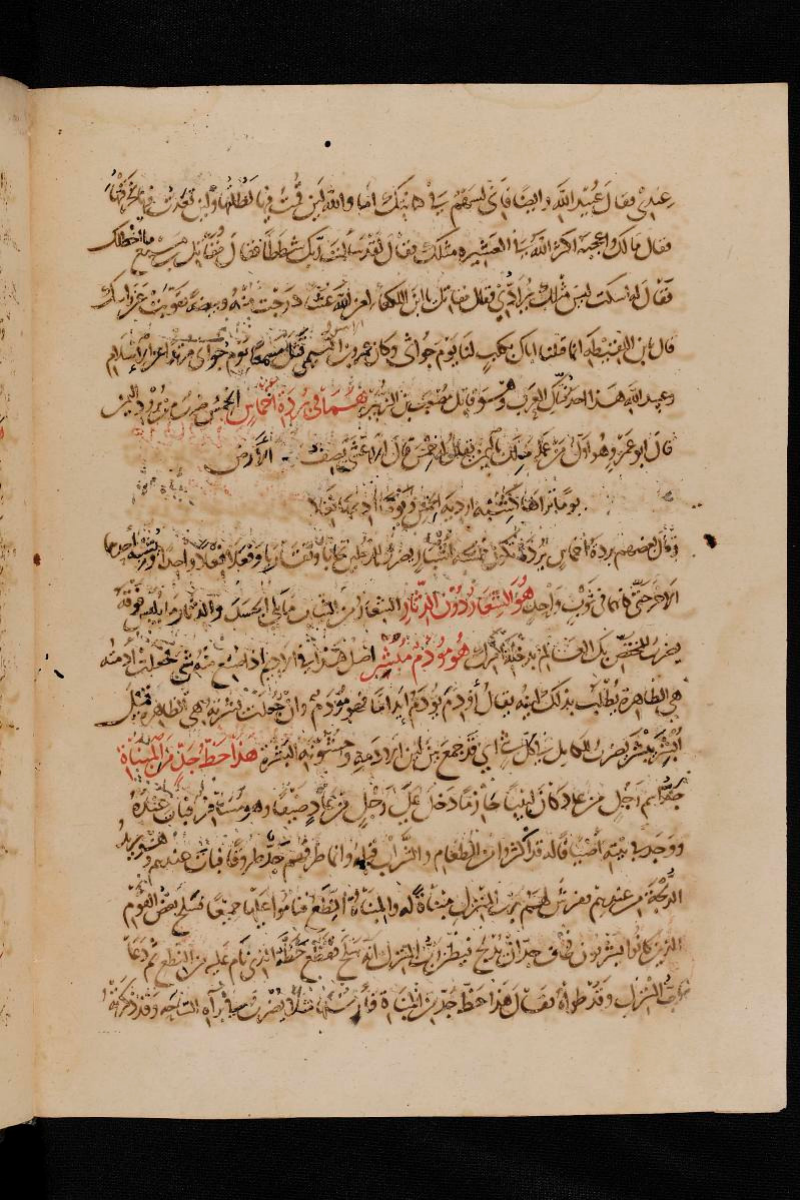 عندي فقال عبيد الله وايضا فاني لسهم في كنانتك اما والله لئن قمت فيها لطلتها ولئن قعدت فيها لخرقتها
فقال مالك واعجبه اكثر الله في العشيرة مثلك فقال لقد سالت ربك شططا فقال مقاتل بن مسمع ما اخطلك
فقال له اسكت ليس مثلك يرادني فقال مقاتل يا ابن اللكعاء لعن الله عشا درجت منه وبيضة تقوبت عن راسك
قال يا ابن اللقيطة انما قتلنا اباك بكلب لنا يوم جواثى وكان عمرو بن الاسود التميمي قتل مسمعا يوم جواثى مرتدا عن الاسلام
وعبيد الله هذا احد فتاك العرب وهو قاتل مصعب بن الزبير هما في بردة اخماس الخمس ضرب من برود اليمن
قال ابو عمرو وهو اول من عمله ملك باليمن يقال له الخمس قال الاعشى يصف الارض
يوما تراها كشبه اردية الخمس ويوما اديمها نغلا
وقال بعضهم بردة اخماس بردة تكون خمسة اشبار يضرب للرجلين تحابا وتقاربا وفعلا فعلا واحدا ويشبه احدهما
الاخر حتى كانهما في ثوب واحد هو الشعار دون الدثار الشعار من الثياب ما يلي الجسد والدثار ما يلبس فوقه
يضرب للمختص بك العالم بدخلة امرك هو مؤدم مبشر اصل هذا في الاديم اذا صنع منه شيء فجعلت ادمته
هي الظاهرة يطلب بذلك لينه يقال اودم يؤدم ايداما فهو مؤدم وان جعلت بشرته هي الظاهرة قيل
ابشر يبشر يضرب للكامل في كل شيء اي قد جمع بين لين الادمة وخشونة البشرة هذا احظ جد من المبناة
جد اسم رجل من عاد كان لبيبا حازما دخل على رجل من عاد ضيفا وهو مسافر فبات عنده
ووجد في بيته اضيافا له قد اكثروا من الطعام والشراب قبله وانما طرقهم جد طروقا فبات عندهم وهو يريد
الدلجة من عندهم ففرش لهم رب المنزل مبناة له والمبناة النطع فناموا عليها جميعا فسلح بعض القوم
الذين كانوا يشربون فخاف جد ان يدلج فيظن رب المنزل انه سلح فقطع حظه الذي نام عليه من النطع ثم دعا
رب المنزل وقد طواه فقال هذا حظ جد من المبناة فارسلها مثلا يضرب في براءة الساحة وقد ذكرته